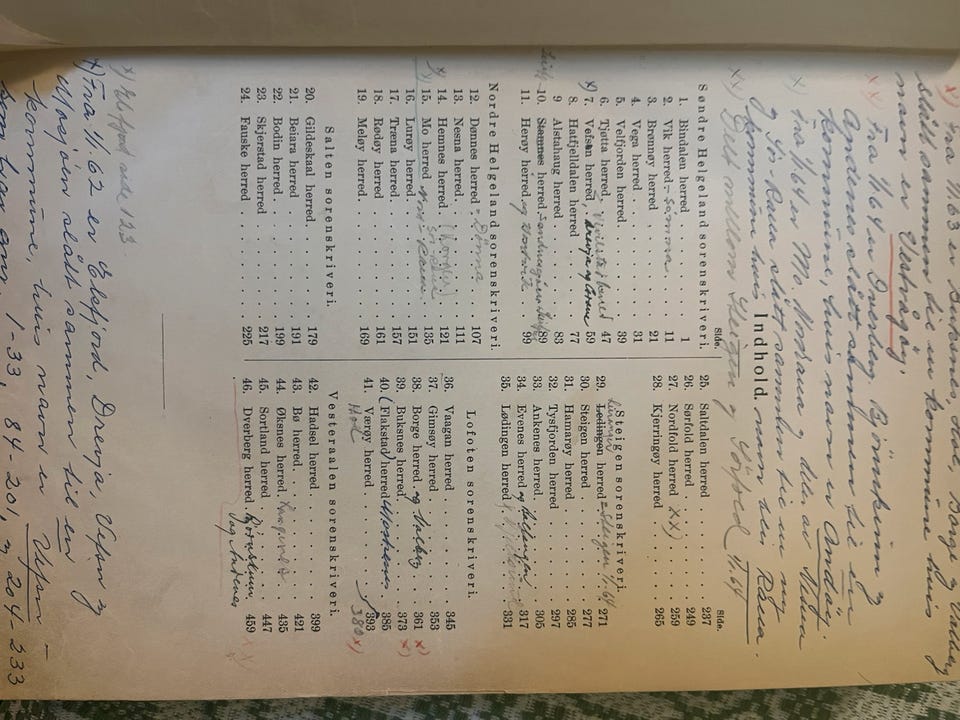 x) Fra 1/1.63 er Buksnes, Hol, Borge og Valberg
slått sammen til en kommune hvis
navn er Vestvågøy.
xx) Fra 1/1 64 er Dverberg, Bjørnskinn og
Andenes slått sammen til en
kommune, hvis navn er Andøy.
x) Fra 1/1 64 er Mo, Nordrana, del av Nesna
og Sør-Rana slått sammen til en ny
kommune hvis navn er Rana.
xx) Delt mellom Steigen og Sørfold 1/1.64
Indhold.
Side.
Søndre Helgeland sorenskriveri.
1. Bindalen herred 1
2. Vik herred - Somna 11
3. Brønnøy herred 21
4. Vega herred 31
5. Velfjorden herred 39
6. Tjøtta herred, 47
x) 7. Vefsn herred, Drevja og Grane 59
8. Hatfjelldalen herred 77
9 Alstahaug herred 83
10. Stamnes herred - Sandnessjøen 89
11. Herøy herred og Nordvik 99
Nordre Helgeland sorenskriveri.
12. Dønnes herred = Dönna 107
13. Nesna herred 111
14. Hemnes herred (Korgen) 121
x) 15. Mo herred Nord-Rana 135
16. Lurøy herred 151
17. Træna herred 157
18. Rødøy herred 161
19. Meløy herred 169
Salten sorenskriveri
20. Gildeskaal herred 179
21. Beiarn herred 191
22. Bodin herred 199
23. Skjerstad herred 217
24. Fauske herred 225
Side.
25. Saltdalen herred 237
26. Sørfold herred 249
27. Nordfold herred xx) 259
28. Kjerringøy herred 265
Steigen sorenskriveri.
29. Ledingen herred = Steigen 1/1.64 271
30. Steigen herred 277
31. Hamarøy herred 285
32. Tysfjorden herred 297
33. Ankenes herred 305
34. Evenes herred og Ballangen 317
35. Lødingen herred 331
Lofoten sorenskriveri.
36. Vaagan herred 345
37. Gimsøy herred 353
38. Borge herred og Valberg 361 x)
39. Buksnes herred 373 x)
40. (Flakstad) herred 385
41. Værøy herred 393
Hol 380 x)
Vesteraalen sorenskriveri.
42. Hadsel herred 399
43. Bø herred 421
44. Øksnes herred. Langenes 435
45. Sortland herred 447
46. Dverberg herred Bjørnskinn 459
og Andenes xx
x) Elsfjord side 123
x) Fra 1/1.62 er Elsfjord, Drevja, Vefsn og
Mosjøen slått sammen til en
kommune, hvis navn er Vefsn -
1-33, 84-201, 204-233